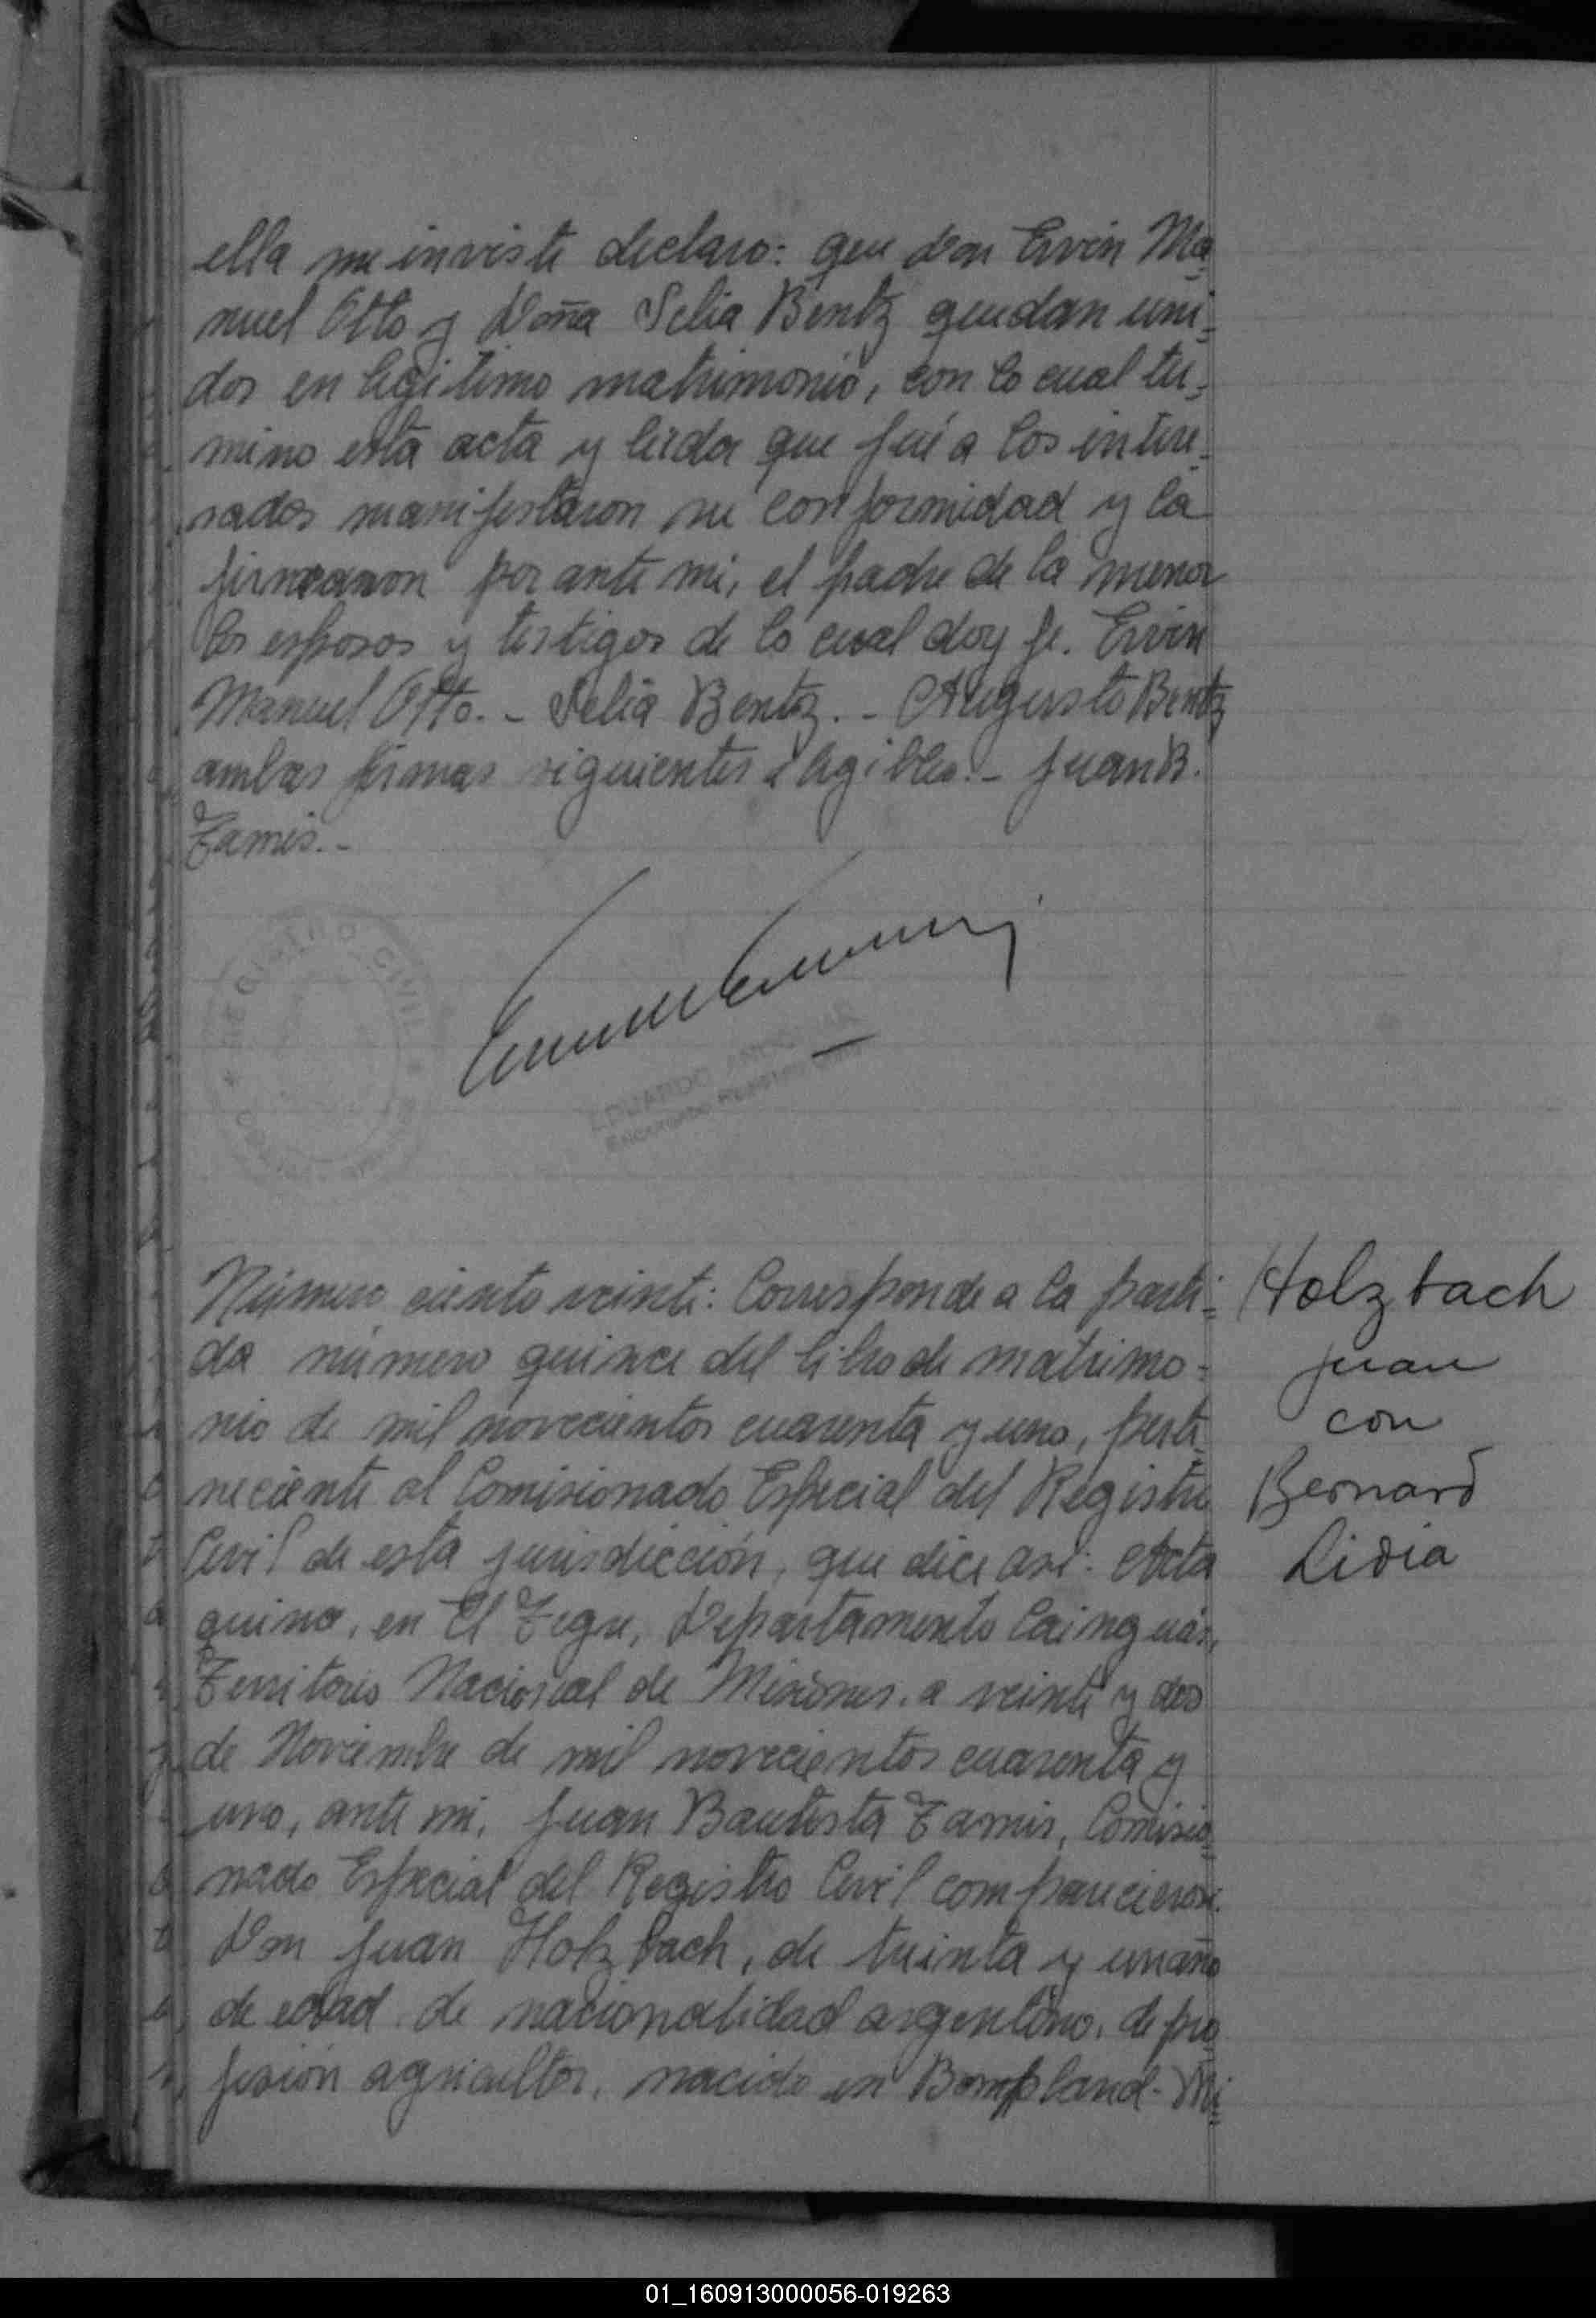 ella me inviste declaro: que don Ervin Ma-
nuel Otto y Doña Selia Bentz quedan uni-
dos en legítimo matrimonio, con lo cual ter-
mino esta acta y leida que fué a los intere-
sados manifestaron su conformidad y la
firmaron por ante mi, el padre de la menor
los esposos y testigos de lo cual doy fe. Ervin
Manuel Otto. - Selia Bentz. - Augusto Bentz
ambas firmas siguientes ilegibles. - Juan B.
Tamis. -
REGISTRO CIVIL
EDUARDO
Encargado Registro Civil
Número ciento veinte: Corresponde a la parti-
da número quince del libro de matrimo-
nio de mil novecientos cuarenta y uno, perte-
neciente al Comisionado Especial del Registro
Civil de esta jurisdicción, que dice asi: Acta
quince, en El Tegre, Departamento Cainguás,
Territorio Nacional de Misiones, a veinte y dos
de Noviembre de mil novecientos cuarenta y
uno, ante mi, Juan Bautista Tamis, Comisio-
nado Especial del Registro Civil comparecieron:
Don Juan Holzbach, de treinta y un año
de edad de nacionalidad argentino, de pro-
fesión agricultor, nacido en Bompland - Mi-
Holzbach
Juan
con
Bernard
Lidia
01_160913000056-019263